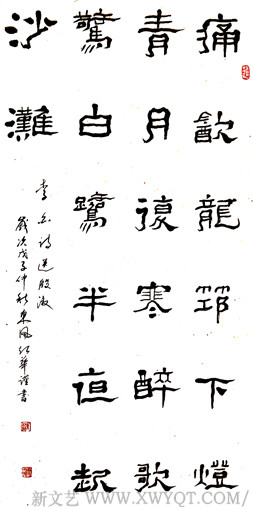 痛㱃龍筇下燈
青月復寒醉歌
驚白鷺半夜起
沙灘
李白詩送殷淑
歲次戊子仲秋東風紅華謹書
新文艺 WWW.XWYQT.COM